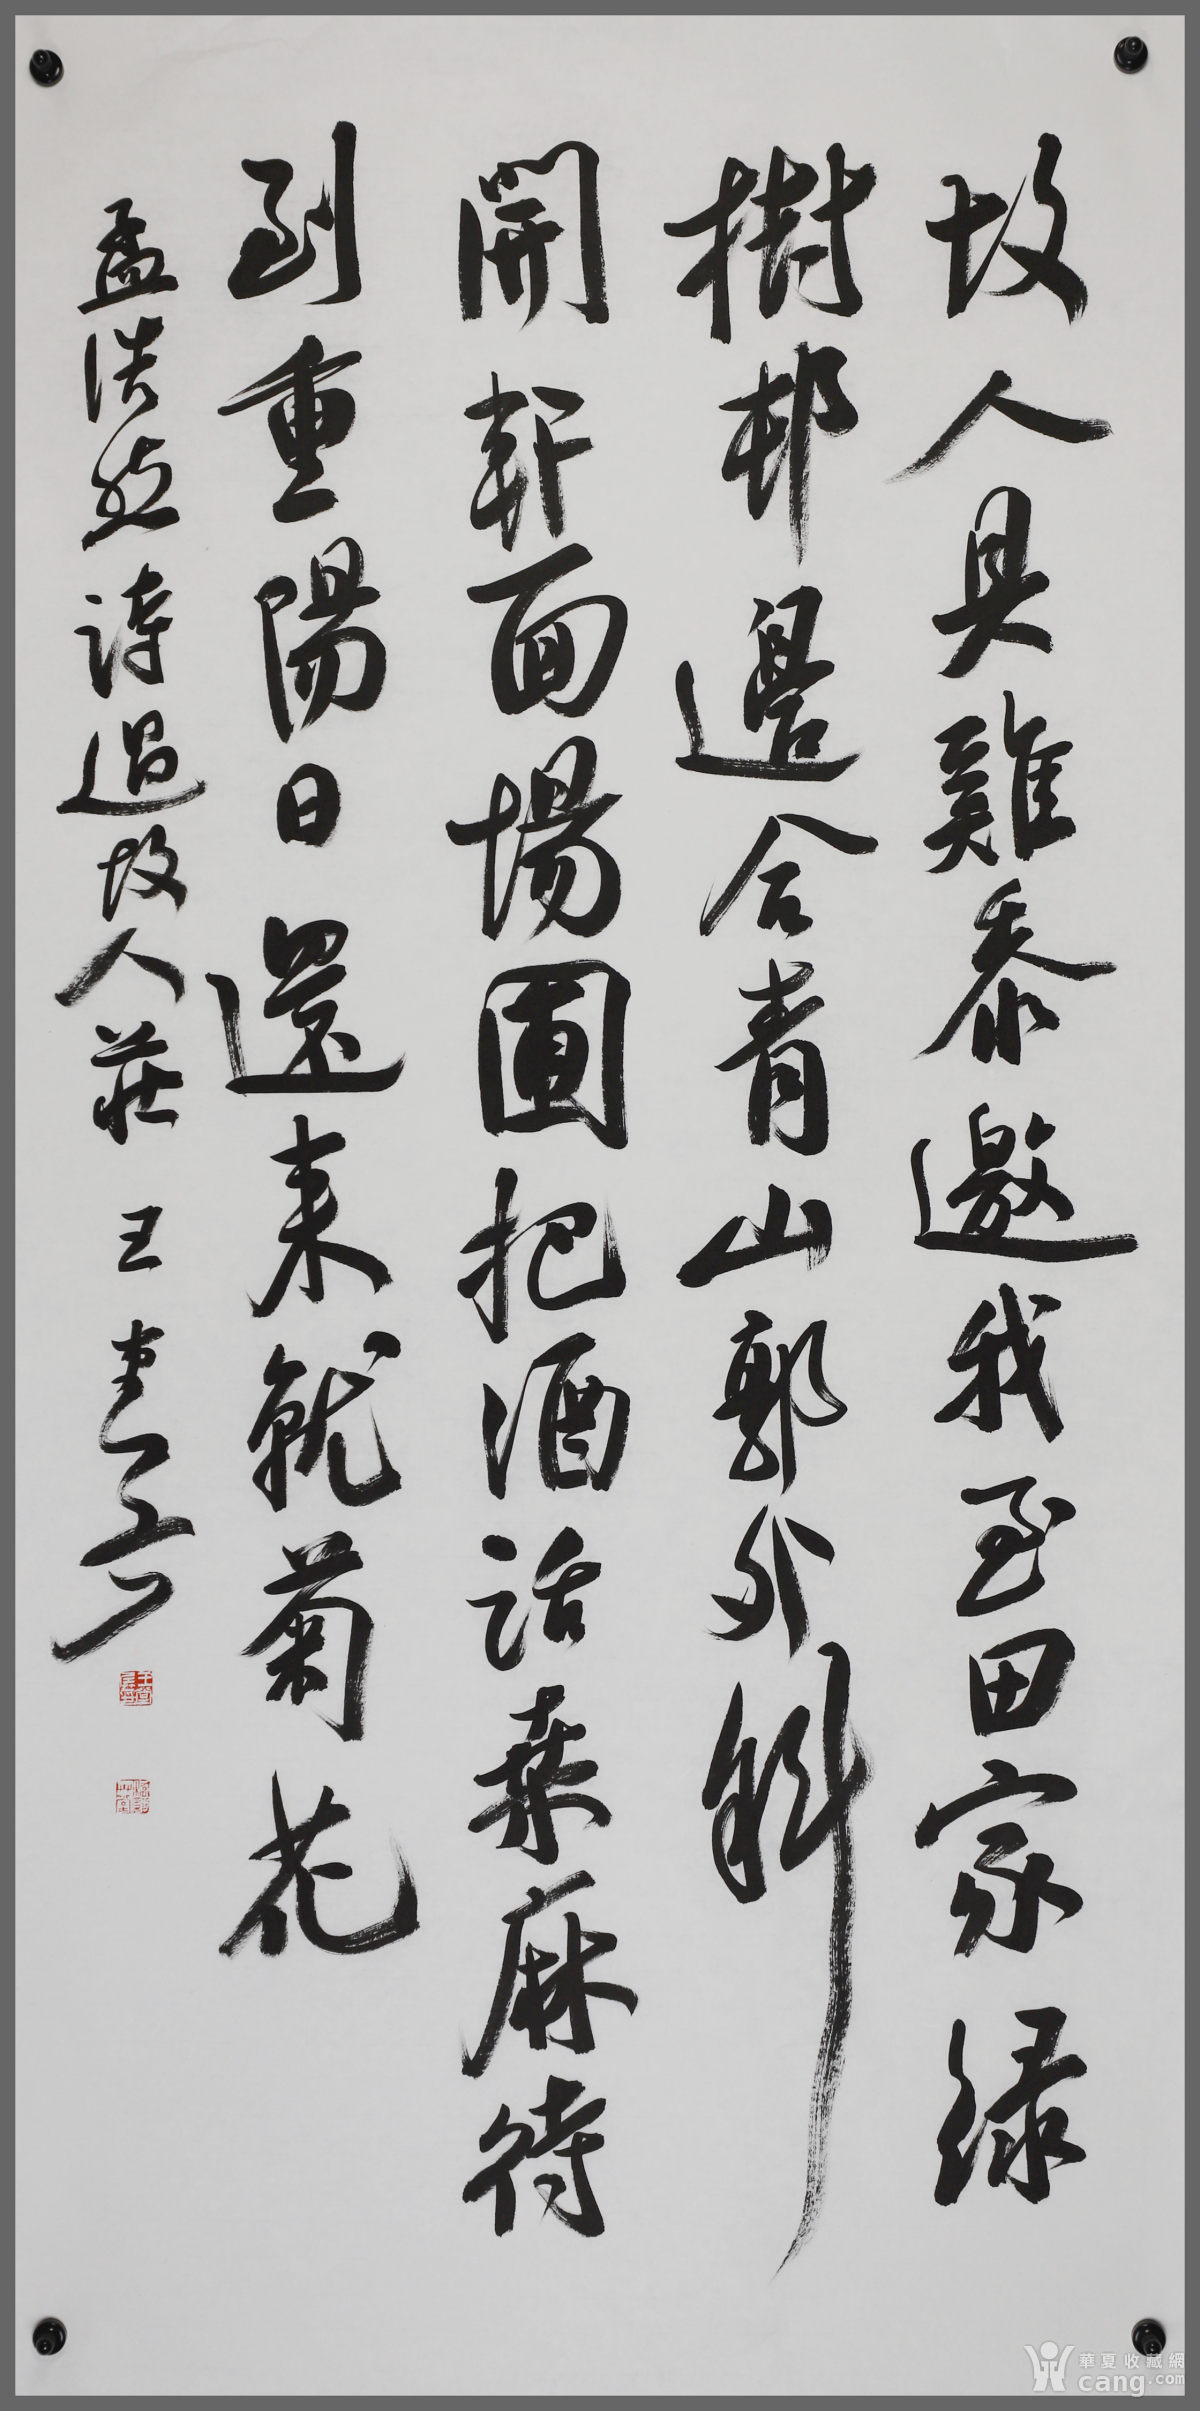 故人具雞黍邀我至田家緑
樹邨邊合青山郭外斜
開軒面場圃把酒話桑麻待
到重陽日還来就菊花
孟浩然詩過故人莊 王
華夏收藏網
cang.com